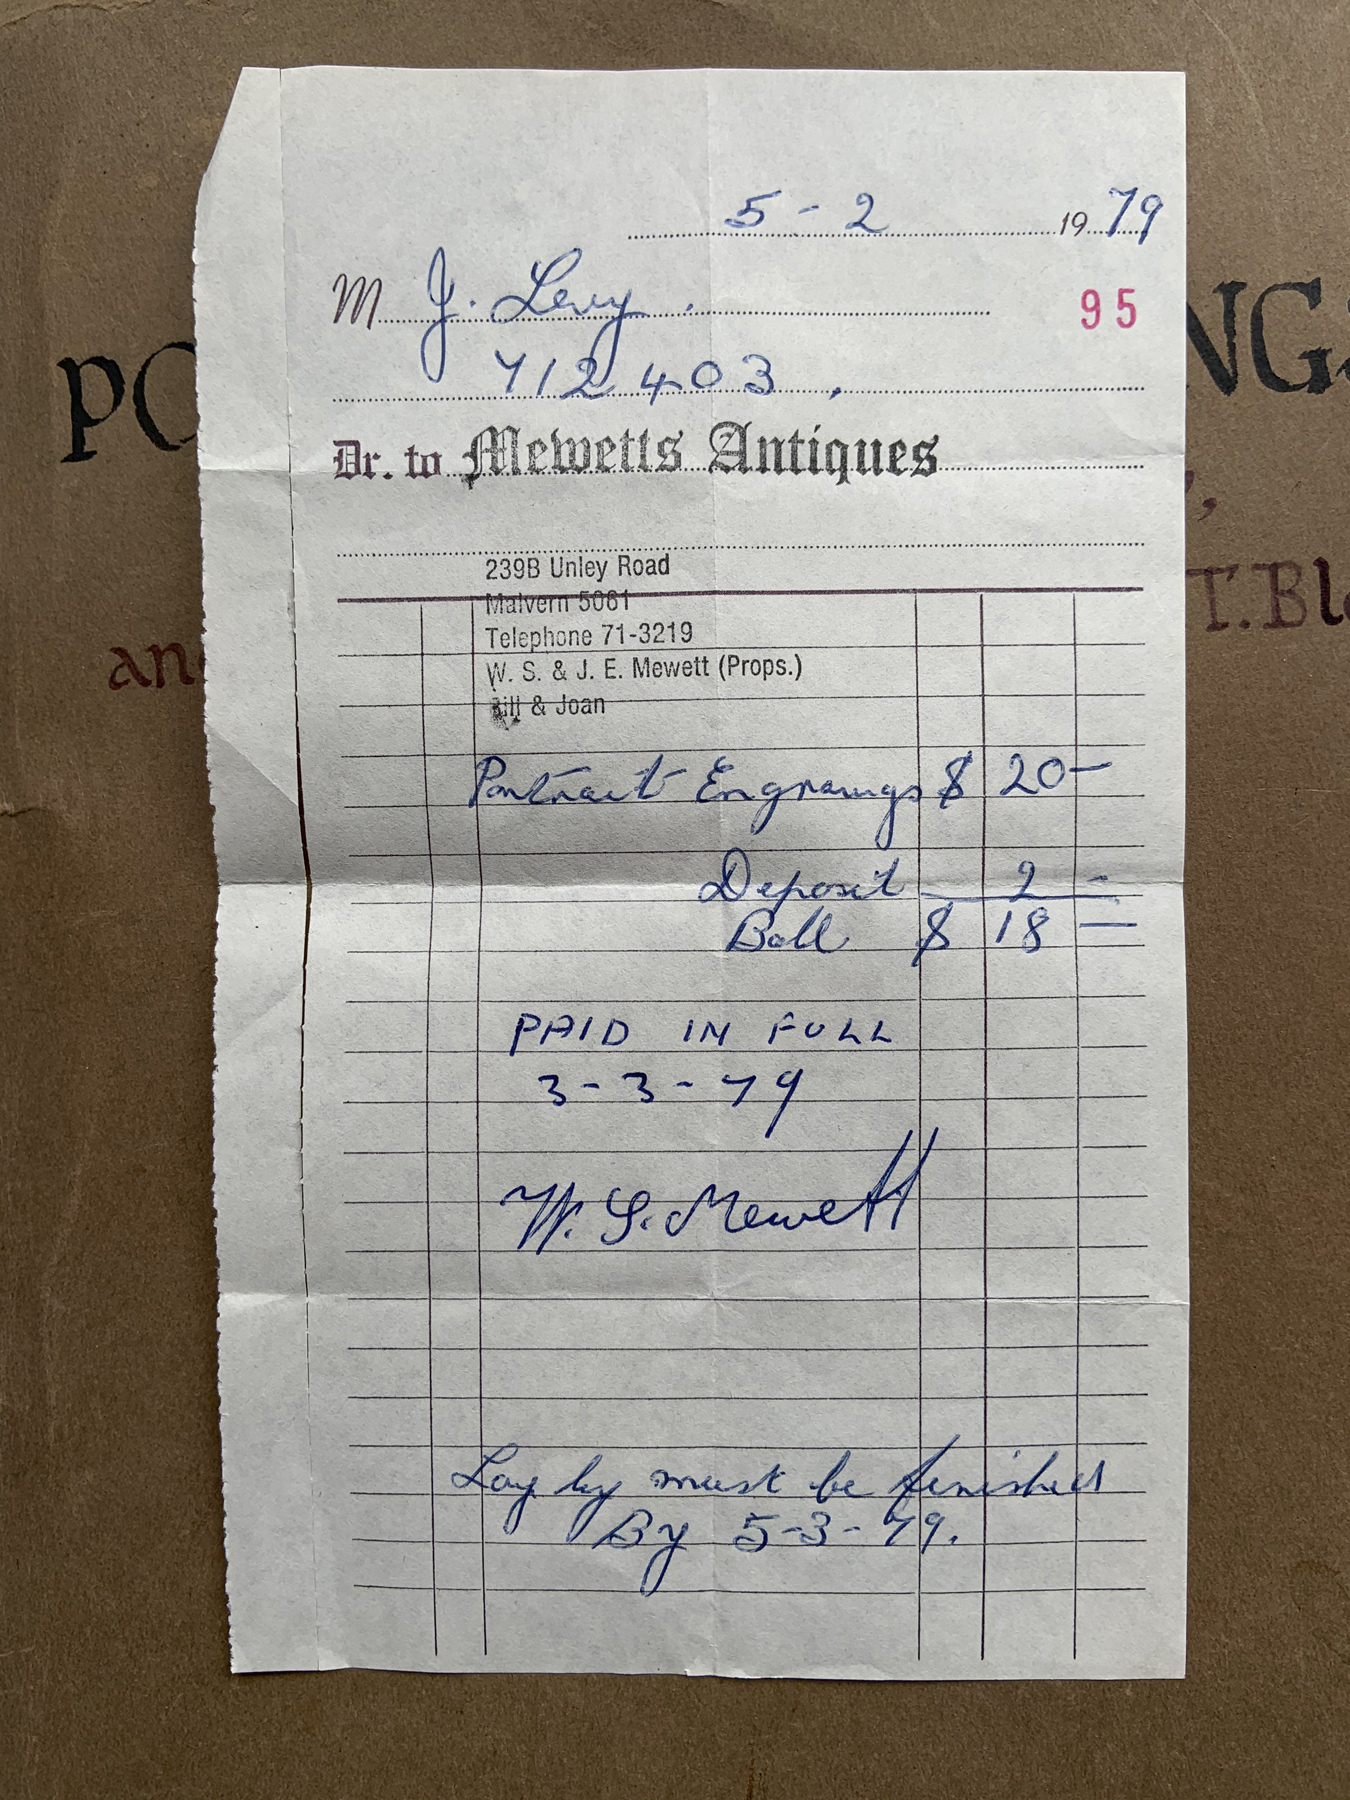 5 - 2 1979
M J. Levy. 95
712403.
PO NGS
Dr. to Mewetts Antiques
239B Unley Road
Malvern 5061
T. Bl
Telephone 71-3219
an
W. S. & J. E. Mewett (Props.)
Bill & Joan
Portrait Engravings $ 20-
Deposit 2 -
Ball $ 18 —
PAID IN FULL
3-3-79
W. S. Mewett
Lay by must be finished
By 5-3-79.